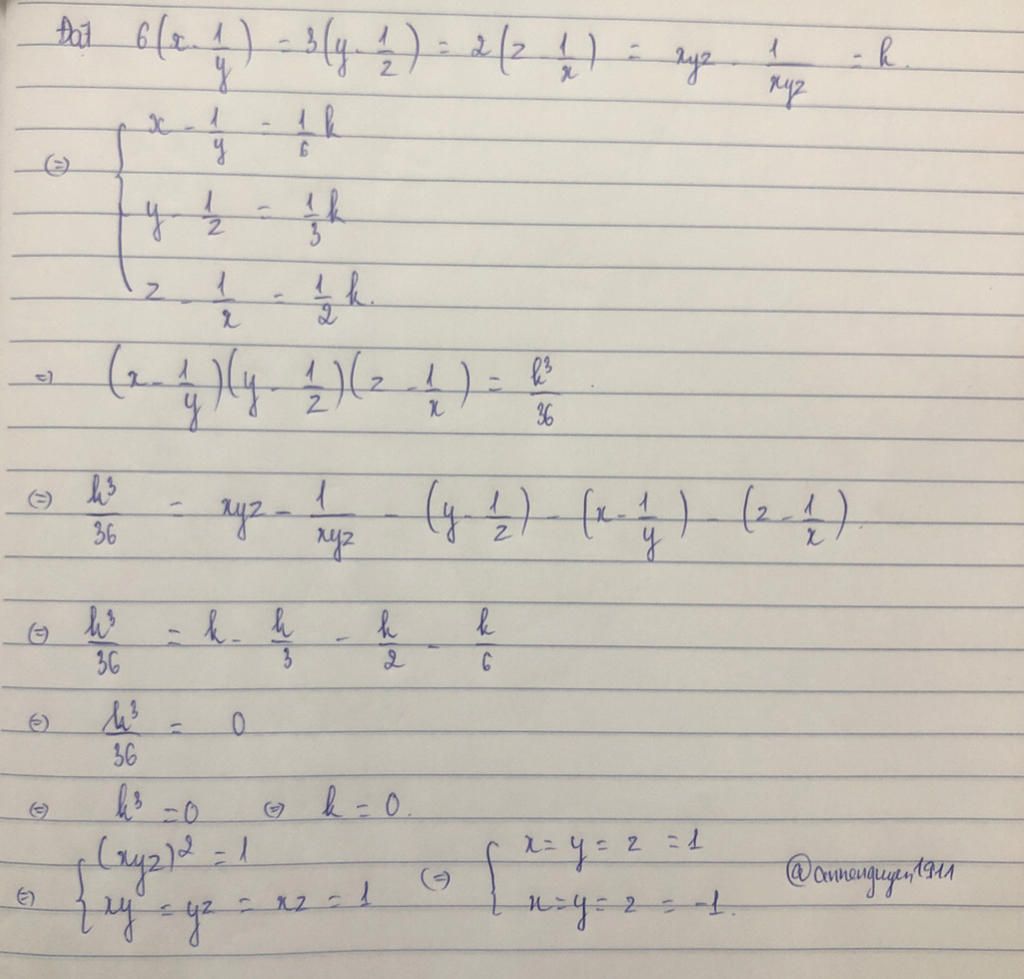 Đặt 6(x - 1/y) = 3(y - 1/z) = 2(z - 1/x) = xyz - 1/xyz = k.
(=) { x - 1/y = 1/6 k
y - 1/z = 1/3 k
z - 1/x = 1/2 k.
=) (x - 1/y)(y - 1/z)(z - 1/x) = k³/36.
(=) k³/36 = xyz - 1/xyz - (y - 1/z) - (x - 1/y) - (z - 1/x).
(=) k³/36 = k - k/3 - k/2 - k/6
(=) k³/36 = 0
(=) k³ = 0 (=) k = 0.
(=) { (xyz)² = 1 (=) { x = y = z = 1
xy = yz = xz = 1 x = y = z = -1.
@annenguyen1911